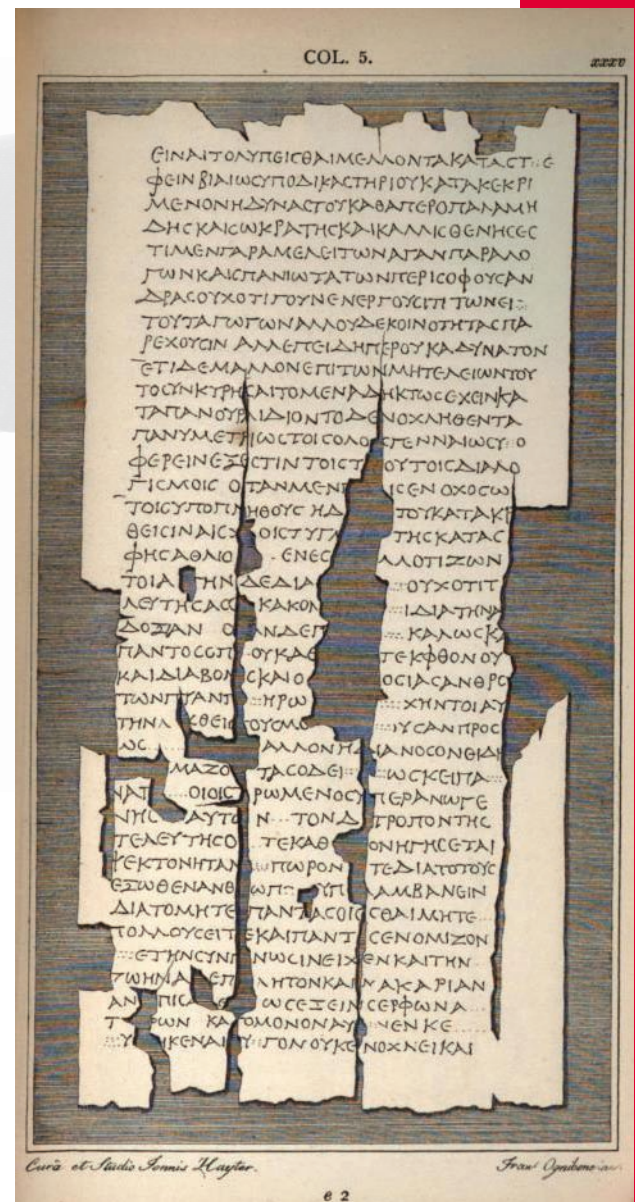 COL. 5.
xxxv
ΕΙΝΑΙΤΟΛΥΠΕΙϹΘΑΙΜΕΛΛΟΝΤΑΚΑΤΑϹΤ Ε
ΦΕΙΝΒΙΑΙΩϹΥΠΟΔΙΚΑϹΤΗΡΙΟΥΚΑΤΑΚΕΚΡΙ
ΜΕΝΟΝΗΔΥΝΑϹΤΟΥΚΑΘΑΠΕΡΟΠΑΛΑΜΗ
ΔΗϹΚΑΙϹΩΚΡΑΤΗϹΚΑΙΚΑΛΛΙϹΘΕΝΗϹΕϹ
ΤΙΜΕΝΓΑΡΑΜΕΛΕΙΤΩΝΑΓΑΝΠΑΡΑΛΟ
ΓΩΝΚΑΙϹΠΑΝΙΩΤΑΤΩΝΠΕΡΙϹΟΦΟΥϹΑΝ
ΔΡΑϹΟΥΧΟΤΙΓΟΥΝΕΝΕΡΓΟΥϹΙΠΙΤΩΝΕΙ
ΤΟΥΤΑΓΩΓΩΝΑΛΛΟΥΔΕΚΟΙΝΟΤΗΤΑϹΠΑ
ΡΕΧΟΥϹΙΝ ΑΛΛΕΠΕΙΔΗΠΕΡΟΥΚΑΔΥΝΑΤΟΝ
ΕΤΙΔΕΜΑΛΛΟΝΕΠΙΤΩΝΜΗΤΕΛΕΙΩΝΤΟΥ
ΤΟϹΥΝΚΥΡΗϹΑΙΤΟΜΕΝΑΔΗΚΤΩϹΕΧΕΙΝΚΑ
ΤΑΠΑΝΟΥΡΑΙΔΙΟΝΤΟΔΕΝΟΧΛΗΘΕΝΤΑ
ΠΑΝΥΜΕΤΡΙΩϹΤΟΙϹΟΛΟϹΓΕΝΝΑΙΩϹΥ Ο
ΦΕΡΕΙΝΕΞΕϹΤΙΝΤΟΙϹΤ ΟΥΤΟΙϹΔΙΑΛΟ
ΓΙϹΜΟΙϹ ΟΤΑΝΜΕΝΓ ΙϹΕΝΟΧΟϹΩ
ΤΟΙϹΥΠΟΠΛΗΘΟΥϹ ΗΔ ΤΟΥΚΑΤΑΚΡ
ΘΕΙϹΙΝΑΙϹΥ ΟΙϹΤΥΓΧ ΤΗϹΚΑΤΑϹ
ΦΗϹΑΘΛΙΟ ΕΝΕϹ ΛΛΟΤΙΖΩΝ
ΤΟΙΑ ΤΗΝ ΔΕΔΙΑ ΟΥΧΟΤΙΤ
ΛΕΥΤΗϹΑϹ ΚΑΚΟΝ ΙΔΙΑΤΗΝΑ
ΔΟΞΙΑΝ Ο ΑΝΔΕΠ ΚΑΛΩϹΚΑ
ΠΑΝΤΟϹϹΠ ΟΥΚΑΘ ΤΕΚΦΘΟΝΟΥ
ΚΑΙΔΙΑΒΟΛ ϹΚΑΙΟ ΟϹΙΑϹΑΝΘΡΩ
ΤΩΝΠΑΝΤ ΗΡΩ ΧΗΝΤΟΙΑΥ
ΤΗΝΛ ϹΘΕΙϹ ΟΥϹΜΟ ΙΥϹΑΝΠΡΟϹ
ΝϹ ΑΛΛΟΝΗΔ ΙΑΝΟϹΟΝΘΙΔΗ
ΜΑΖΟ ΤΑϹΟΔΕΙ ΩϹΚΕΙΠΑ
ΝΑΤ ΟΙΟΙϹ ΡΩΜΕΝΟϹΥΠΕΡΑΝΩΓΕ
ΝΗϹ ΑΥΤΩΝ ΤΟΝΔ ΤΡΟΠΟΝΤΗϹ
ΤΕΛΕΥΤΗϹΟ ΤΕΚΑΘ ΟΝΗΓΗϹΕΤΑΙ
ΨΕΚΤΟΝΗΤΑΛ ΠΩΡΟΝ ΤΕΔΙΑΤΟΤΟΥϹ
ΕΞΩΘΕΝΑΝΘ ΩΠ ΥΠ ΛΑΜΒΑΝΕΙΝ
ΔΙΑΤΟΜΗΤΕ ΠΑΝΤΑϹΟΙΕϹΘΑΙΜΗΤΕ
ΠΟΛΛΟΥϹΕΙΤΕΚΑΙΠΑΝΤ ϹΕΝΟΜΙΖΟΝ
ΕΤΗΝϹΥΝΓΝΩϹΙΝΕΙΧΕΝΚΑΙΤΗΝ
ΤΩΗΝΑ ΕΠ ΛΗΤΟΝΚΑΙΜΑΚΑΡΙΑΝ
ΑΝ ΠΙϹΑ ΩϹΕΞΕΙΝϹΕΡΦΩΝΑ
Τ ΡΩΝ ΚΑ ΤΟΜΟΝΟΝΑΥ ΝΕΝΚΕ
Υ ΗΚΕΝΑΙ Υ ΓΟΝΟΥΚΕΝΟΧΛΕΙΚΑΙ
Curâ et Studio Ioannis Hayter.
e 2